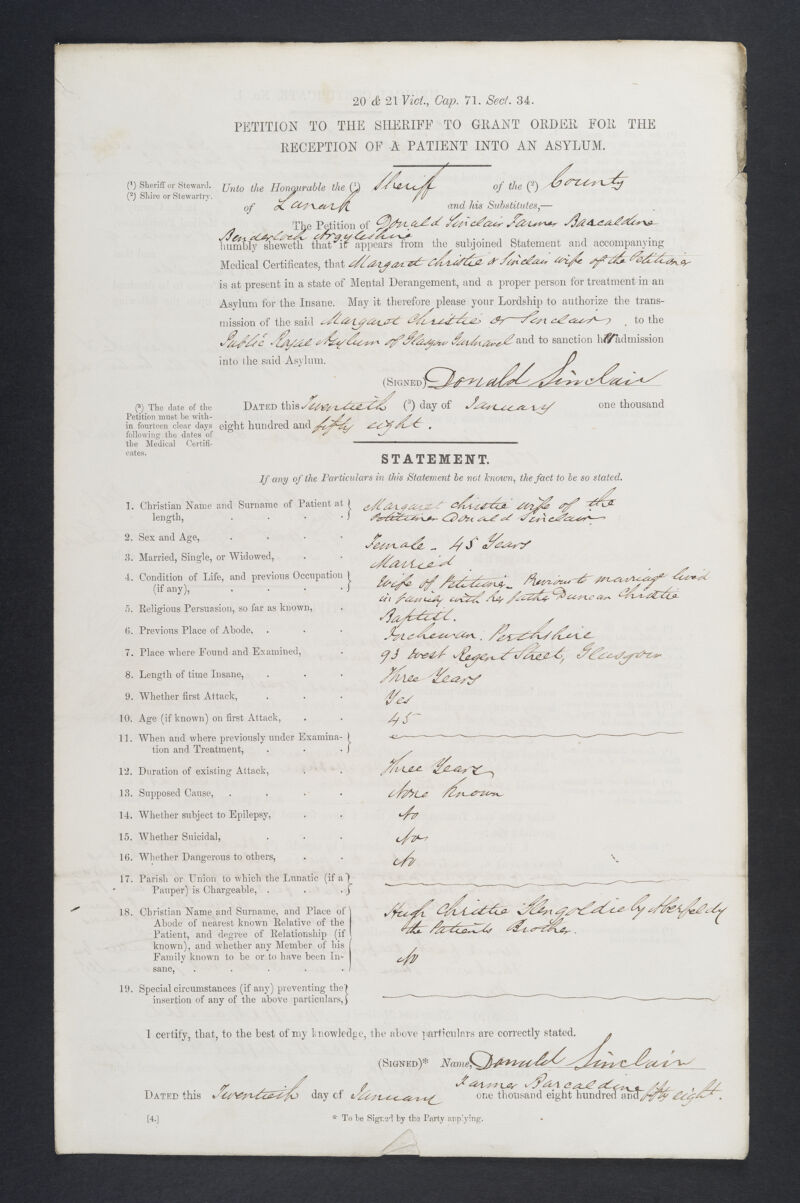 20 & 21 Vict., Cap. 71. Sect. 34.
PETITION TO THE SHERIFF TO GRANT ORDER FOR THE
RECEPTION OF A PATIENT INTO AN ASYLUM.
(¹) Sheriff or Steward.
(²) Shire or Stewartry.
Unto the Honourable the (¹) Sheriff of the (²) County
of Lanark and his Substitutes,—
The Petition of Donald Sinclair Farmer Barcaldine
Benderloch Argyleshire
humbly sheweth that it appears from the subjoined Statement and accompanying
Medical Certificates, that Margaret Christie or Sinclair wife of the Petitioner
is at present in a state of Mental Derangement, and a proper person for treatment in an
Asylum for the Insane. May it therefore please your Lordship to authorize the trans-
mission of the said Margaret Christie or Sinclair, to the
Public Royal Asylum of Glasgow Gartnavel and to sanction her admission
into the said Asylum.
(SIGNED) Donald Sinclair
(³) The date of the
Petition must be with-
in fourteen clear days
following the dates of
the Medical Certifi-
cates.
DATED this Twentieth (³) day of January one thousand
eight hundred and fifty eight.
STATEMENT.
If any of the Particulars in this Statement be not known, the fact to be so stated.
1. Christian Name and Surname of Patient at length, Margaret Christie wife of the
Petitioner Donald Sinclair
2. Sex and Age, Female - 45 Years
3. Married, Single, or Widowed, Married
4. Condition of Life, and previous Occupation (if any), Wife of Petitioner. Previous to marriage lived
in family with her father Duncan Christie
5. Religious Persuasion, so far as known, Baptist.
6. Previous Place of Abode, Perthshire
7. Place where Found and Examined, 93 West Regent Street, Glasgow
8. Length of time Insane, Three Years
9. Whether first Attack, Yes
10. Age (if known) on first Attack, 45
11. When and where previously under Examina-
tion and Treatment,
12. Duration of existing Attack, Three Years
13. Supposed Cause, None Known
14. Whether subject to Epilepsy, No
15. Whether Suicidal, No
16. Whether Dangerous to others, No
17. Parish or Union to which the Lunatic (if a
Pauper) is Chargeable,
18. Christian Name and Surname, and Place of
Abode of nearest known Relative of the
Patient, and degree of Relationship (if
known), and whether any Member of his
Family known to be or to have been In-
sane,
Hugh Christie Glengoldie by Aberfeldy
the Patients Brother.
No
19. Special circumstances (if any) preventing the
insertion of any of the above particulars,
I certify, that, to the best of my knowledge, the above particulars are correctly stated.
(SIGNED)* Name, Donald Sinclair
Farmer Barcaldine
DATED this Twentieth day of January one thousand eight hundred and fifty eight.
[4.]
* To be Signed by the Party applying.